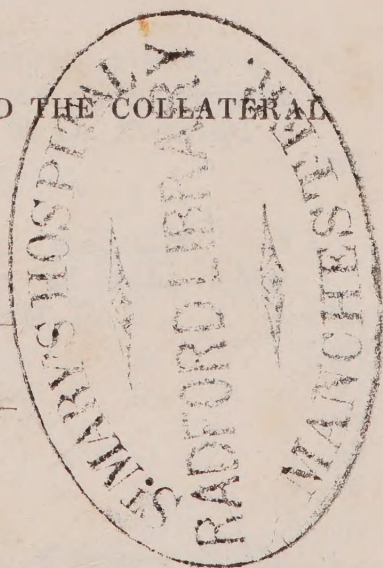 D THE COLLATERAL
ST. MARY'S HOSPITAL
RADFORD LIBRARY
MANCHESTER